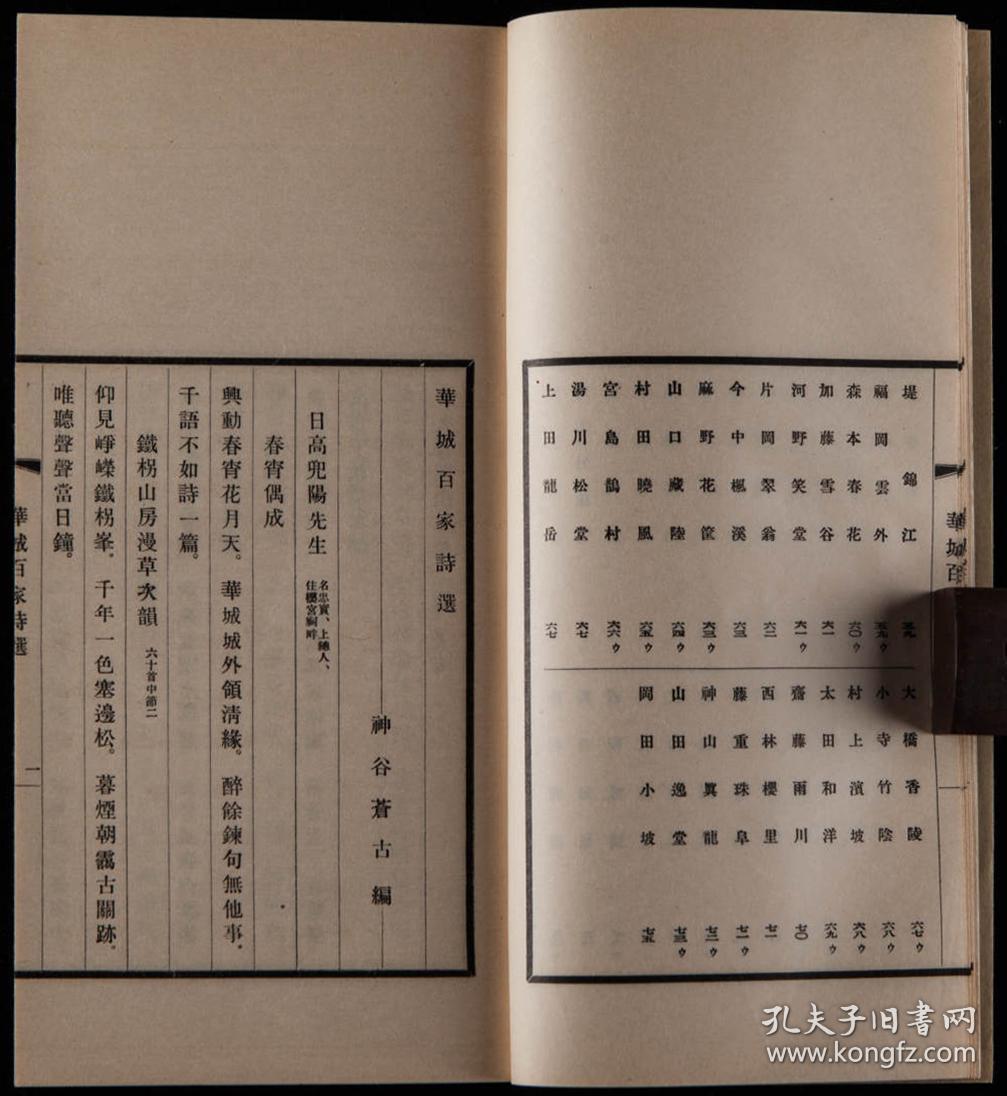 堤錦江 五九
福岡雲外 五九ウ
森本春花 六〇ウ
加藤雪谷 六一
河野笑堂 六一ウ
片岡翠翁 六二
今中楓溪 六三
麻野花筐 六三ウ
山口藏陸 六四ウ
村田曉風 六五ウ
宮島鵲村 六六ウ
湯川松堂 六七
上田龍岳 六七
大橋香陵 六七ウ
小寺竹陰 六八ウ
村上濱坡 六八ウ
太田和洋 六九ウ
齋藤雨川 七〇
西林櫻里 七一
藤重珠阜 七一ウ
神山翼龍 七二ウ
山田逸堂 七三ウ
岡田小坡 七五
華城百
華城百家詩選
神谷蒼古編
日高兜陽先生 名忠實、上總人、
住櫻宮祠畔
春宵偶成
興動春宵花月天。華城城外領清緣。醉餘鍊句無他事。
千語不如詩一篇。
鐵柺山房漫草次韻 六十首中節二
仰見崢嶸鐵柺峯。千年一色塞邊松。暮煙朝靄古關跡。
唯聽聲聲當日鐘。
華城百家詩選
一
孔夫子旧書网
www.kongfz.com